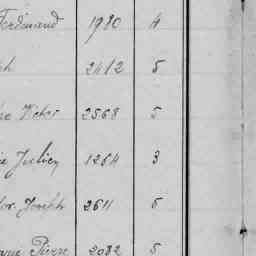 Ferdinand 1980 4
ph 2412 5
Victor 2568 5
Julien 1264 3
Joseph 2611 5
Pierre 2082 5